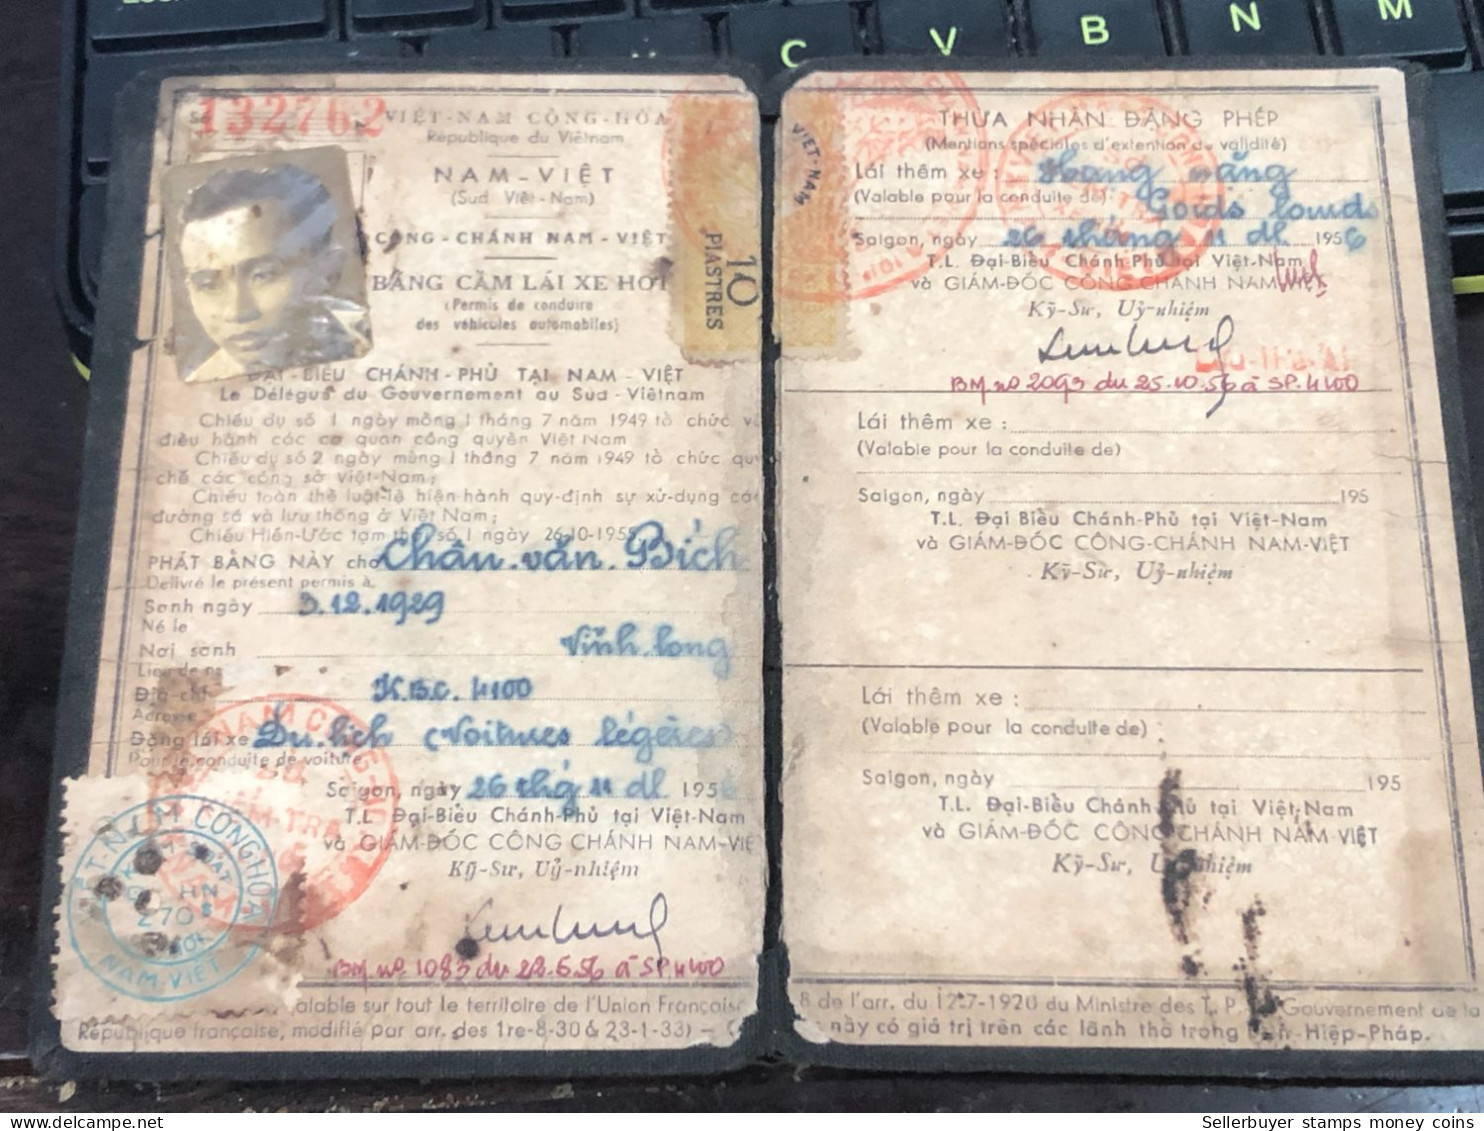 C V B N M
Số 132762
VIỆT-NAM CỘNG-HÒA
République du Viêtnam
NAM-VIỆT
(Sud Viêt-Nam)
CÔNG-CHÁNH NAM-VIỆT
BẰNG CẦM LÁI XE HƠI
(Permis de conduire
des véhicules automobiles)
10
PIASTRES
VIỆT-NAM
ĐẠI-BIỂU CHÁNH-PHỦ TẠI NAM-VIỆT
Le Délégué du Gouvernement au Sud-Viêtnam
Chiếu dụ số 1 ngày mồng 1 tháng 7 năm 1949 tổ chức và
điều hành các cơ quan công quyền Việt Nam
Chiếu dụ số 2 ngày mùng 1 tháng 7 năm 1949 tổ chức quy
chế các công sở Việt-Nam;
Chiếu toàn thể luật-lệ hiện-hành quy-định sự xử-dụng các
đường sá và lưu thông ở Việt Nam;
Chiếu Hiến-Ước tạm thời số 1 ngày 26-10-1955.
PHÁT BẰNG NÀY cho Chân.văn.Bích
Délivré le présent permis à.
Sanh ngày 3.12.1929
Né le
Nơi sanh Vĩnh.long
Lieu de na
Địa chỉ K.B.C. 4100
Adresse
Đặng lái xe Du.lịch (Voitures légères)
Pour la conduite de voiture
Saigon, ngày 26 thg 11 dl 1956
T.L. Đại-Biểu Chánh-Phủ tại Việt-Nam
và GIÁM-ĐỐC CÔNG CHÁNH NAM-VIỆ
Kỹ-Sư, Uỷ-nhiệm
BM nº 1083 du 28.6.56 à SP.4100
VIỆT-NAM CỘNG HÒA
KIỂM SOÁT
270
NAM-VIỆT
alable sur tout le territoire de l'Union Français
République française, modifié par arr. des 1re-8-30 & 23-1-33) –
THỪA NHẬN ĐẶNG PHÉP
(Mentions spéciales d'extention de validité)
Lái thêm xe : Hạng nặng
(Valable pour la conduite de) Poids lourds
Saigon, ngày 26 tháng 11 dl 1956
T.L. Đại-Biểu Chánh-Phủ tại Việt-Nam
và GIÁM-ĐỐC CÔNG CHÁNH NAM-VIỆT
Kỹ-Sư, Uỷ-nhiệm
BM nº 2093 du 25.10.56 à SP.4100
Lái thêm xe :
(Valable pour la conduite de)
Saigon, ngày 195
T.L. Đại Biểu Chánh-Phủ tại Việt-Nam
và GIÁM-ĐỐC CÔNG-CHÁNH NAM-VIỆT
Kỹ-Sư, Uỷ-nhiệm
Lái thêm xe :
(Valable pour la conduite de)
Saigon, ngày 195
T.L. Đại-Biểu Chánh-Phủ tại Việt-Nam
và GIÁM-ĐỐC CÔNG-CHÁNH NAM-VIỆT
Kỹ-Sư, Uỷ-nhiệm
8 de l'arr. du 12-7-1920 du Ministre des T. P. Gouvernement de la
này có giá trị trên các lãnh thổ trong Hiệp-Pháp.
Sellerbuyer stamps money coins